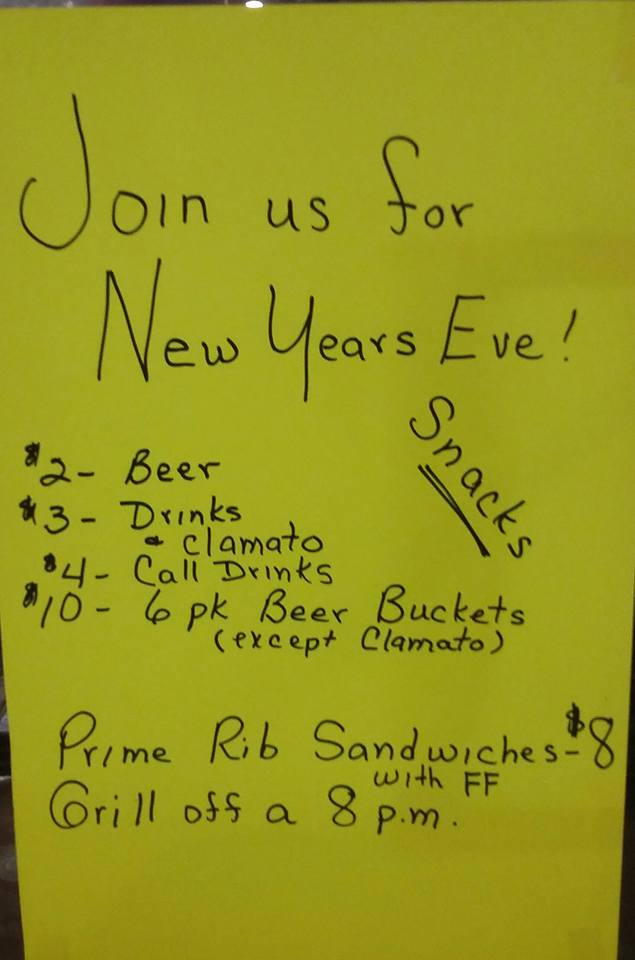 Join us for
New Years Eve!
Snacks
$2- Beer
$3- Drinks
& Clamato
$4- Call Drinks
$10- 6 pk Beer Buckets
(except Clamato)
Prime Rib Sandwiches-$8
with FF
Grill off a 8 p.m.